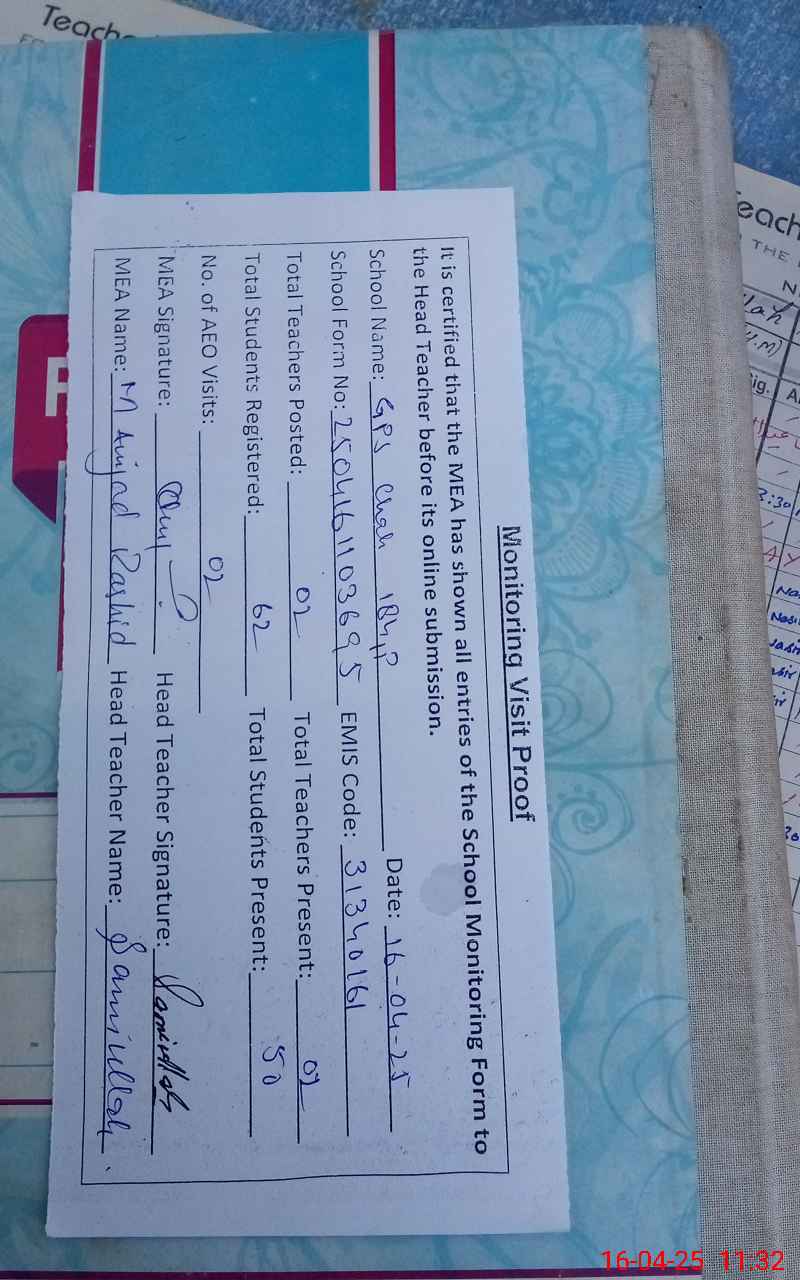 Monitoring Visit Proof
It is certified that the MEA has shown all entries of the School Monitoring Form to
the Head Teacher before its online submission.
School Name: GPS Chak 184P Date: 16-04-25
School Form No: 2504161103695 EMIS Code: 31340161
Total Teachers Posted: 02 Total Teachers Present: 02
Total Students Registered: 62 Total Students Present: 50
No. of AEO Visits: 02
MEA Signature: Head Teacher Signature: Samiullah
MEA Name: M Amjad Rashid Head Teacher Name: Samiullah.
Teach
THE
16-04-25 11:32